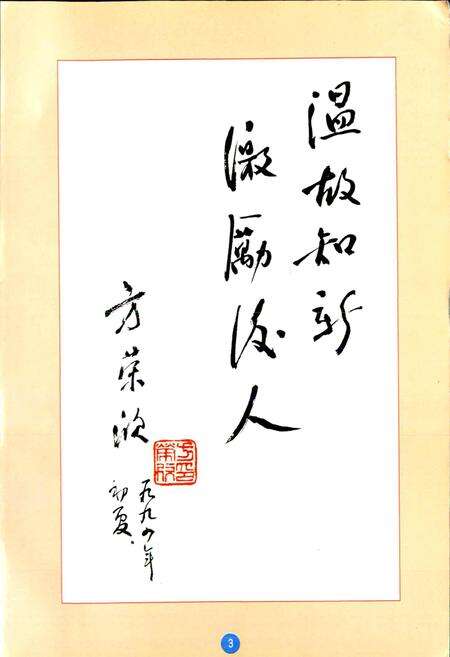 温故知新
激勵後人
方荣欣
一九九四年
初夏
3